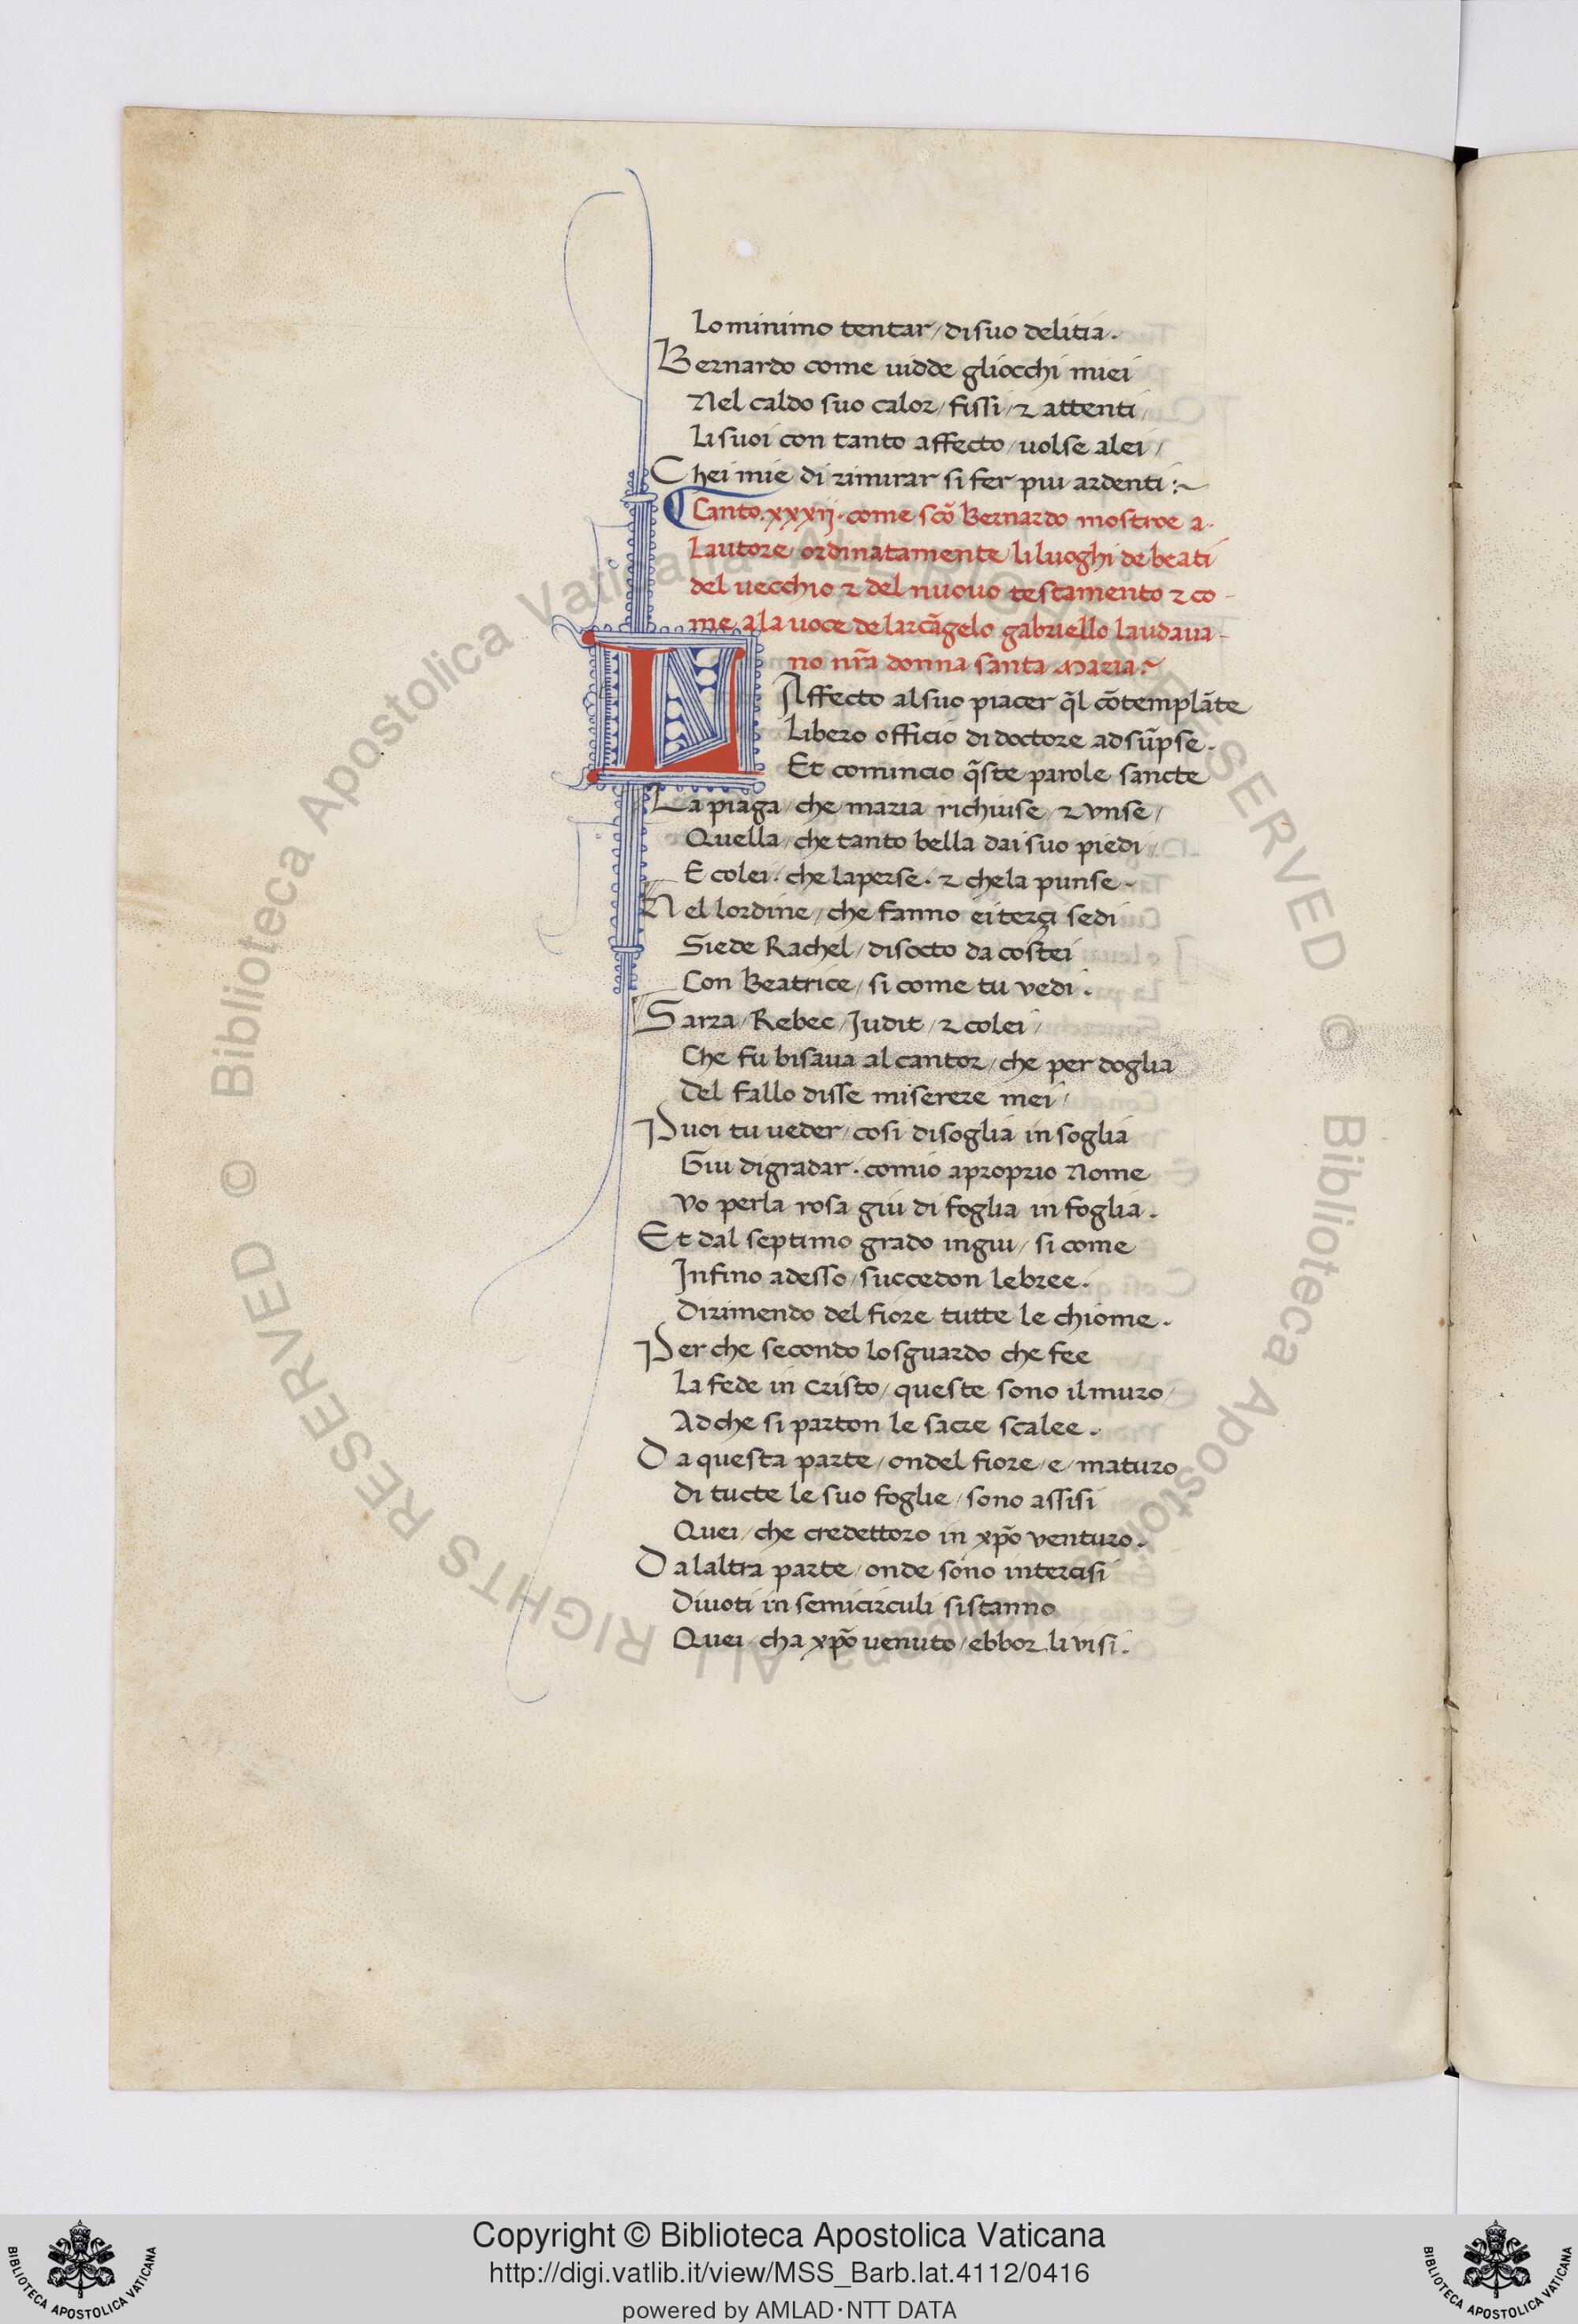 Lo minimo tentar / di suo delitia.
Bernardo come uidde gliocchi miei
Nel caldo suo calor / fissi / ⁊ attenti /
Li suoi con tanto affecto / uolse a lei /
Chei mie di rimirar si fer piu ardenti :~
Canto. xxxij. come sc̃o Bernardo mostroe a-
Lautore / ordinatamente / li luoghi de beati
del vecchio ⁊ del nuouo testamento ⁊ co-
me a la uoce de larcãgelo gabriello laudaua-
no nr̃a donna santa Maria:~
LAffecto al suo piacer q̃l cõtemplãte
Libero officio di doctore adsũpse.
Et comincio q̃ste parole sancte
La piaga / che maria richiuse / ⁊ vnse /
Quella / che tanto bella dai suo piedi /
E colei. che laperse. ⁊ che la punse.
Nel lordine / che fanno ei terçi sedi
Siede Rachel / di socto da costei
Con Beatrice / si come tu vedi.
Sarra / Rebec / Judit / ⁊ colei /
Che fu bisaua al cantor / che per doglia
Del fallo disse miserere mei /
Puoi tu ueder / cosi di soglia in soglia
Giu digradar. comio a proprio Nome
vo per la rosa giu di foglia in foglia.
Et dal septimo grado ingiu / si come
Infino adesso / succedon lebree.
Dirimendo del fiore tutte le chiome.
Per che secondo lo sguardo che fee
La fede in Cristo / queste sono il muro /
Ad che si parton le sacre scalee.
Da questa parte / ondel fiore / e / maturo
Di tucte le suo foglie / sono assisi
Quei / che credettoro in xp̃o venturo.
Dalaltra parte / onde sono intercisi
Diuoti in semicirculi si stanno
Quei / cha xp̃o uenuto / ebbor li visi.
© Biblioteca Apostolica Vaticana ALL RIGHTS RESERVED © Biblioteca Apostolica Vaticana ALL RIGHTS RESERVED
Copyright © Biblioteca Apostolica Vaticana
http://digi.vatlib.it/view/MSS_Barb.lat.4112/0416
powered by AMLAD·NTT DATA
BIBLIOTECA APOSTOLICA VATICANA
BIBLIOTECA APOSTOLICA VATICANA